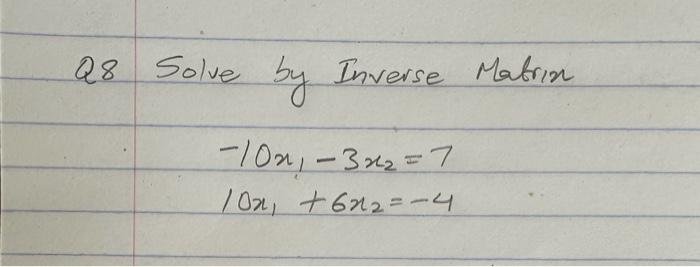 Q8 Solve by Inverse Matrix
-10x₁ - 3x₂ = 7
10x₁ + 6x₂ = -4